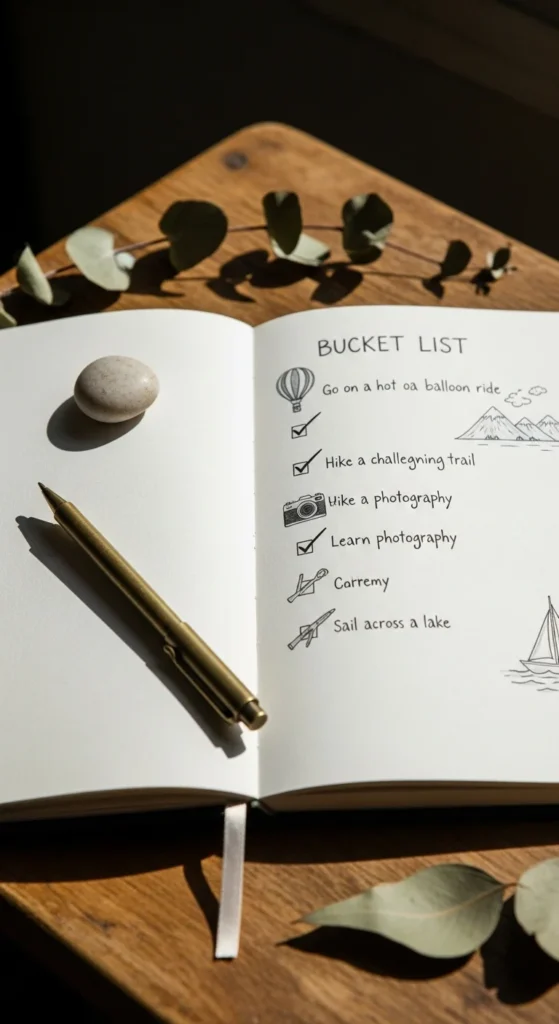 BUCKET LIST
Go on a hot oa balloon ride
Hike a challegning trail
Hike a photography
Learn photography
Carremy
Sail across a lake